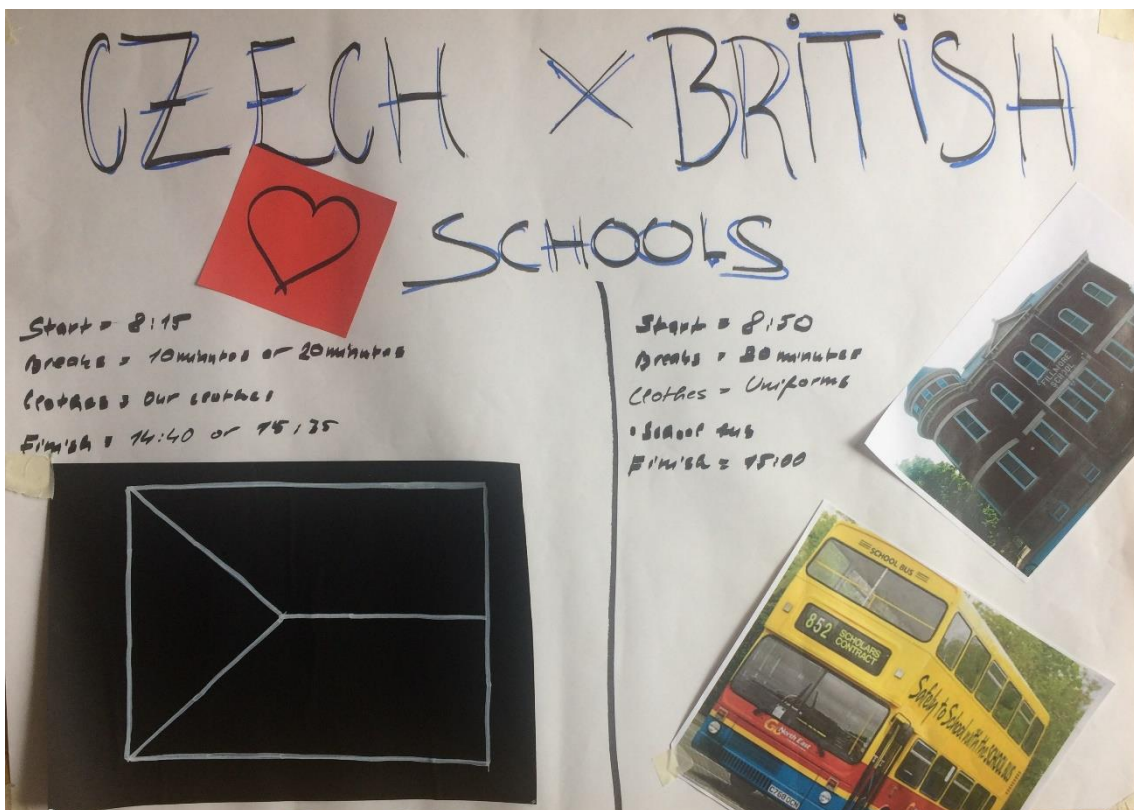 CZECH X BRITISH
SCHOOLS
Start = 8:15
Breaks = 10 minutes or 20 minutes
Clothes = Our clothes
Finish = 14:40 or 15:35
Start = 8:50
Breaks = 20 minutes
Clothes = Uniforms
• School bus
Finish = 15:00
FILLMORE
SCHOOL
SCHOOL BUS
852 SCHOLARS
CONTRACT
Safely to School with the SCHOOL BUS
Go North East